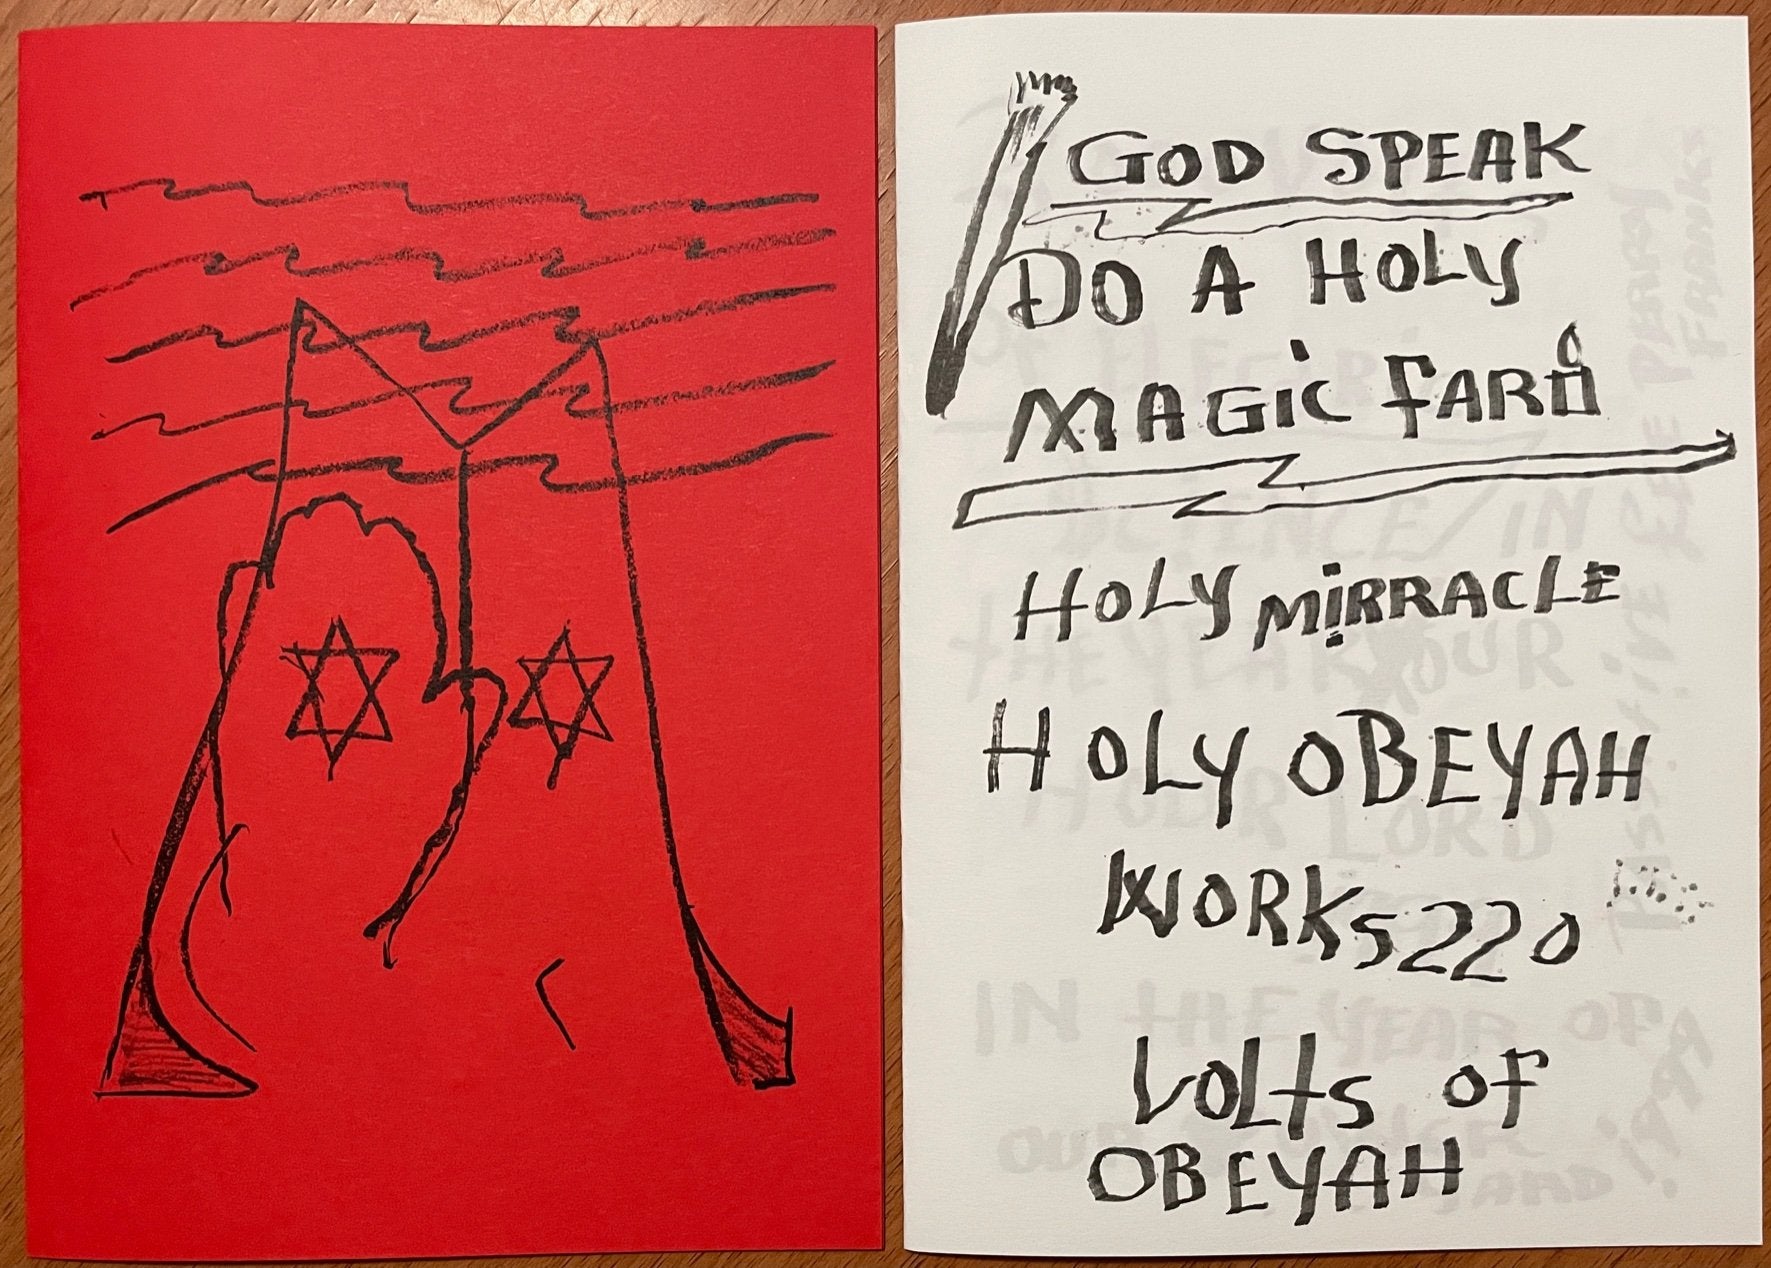 GOD SPEAK
DO A HOLY
MAGIC FARI
HOLY MIRRACLE
HOLY OBEYAH
WORKS 220
VOLtS of
OBEYAH